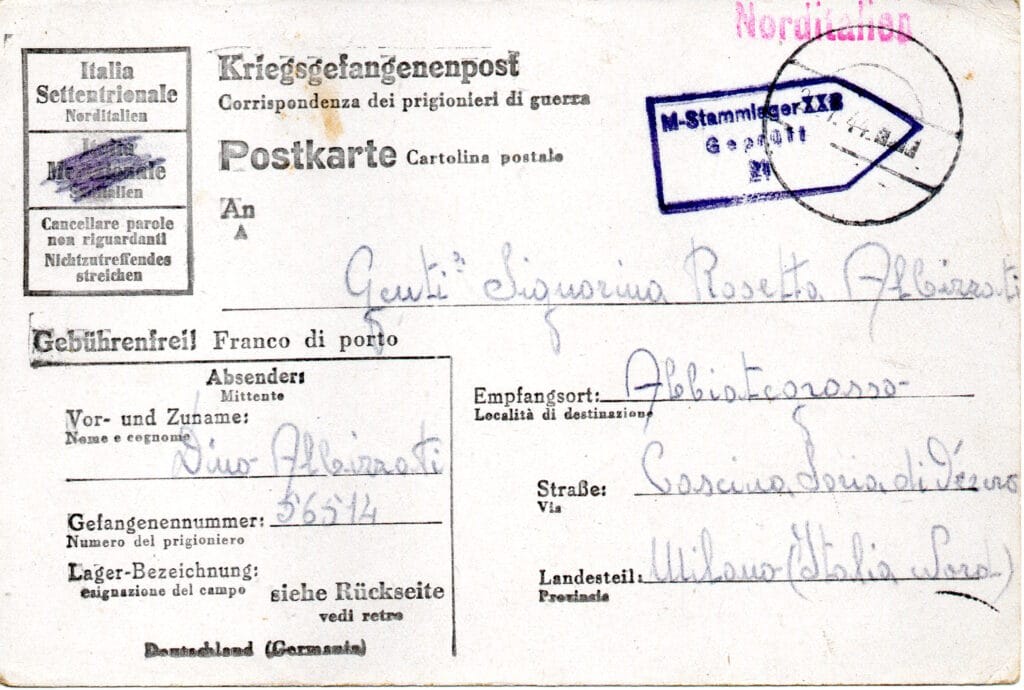 Norditalien
Italia
Settentrionale
Norditalien
Italia
Me nale
italien
Cancellare parole
non riguardanti
Nichtzutreffendes
streichen
Kriegsgefangenenpost
Corrispondenza dei prigionieri di guerra
Postkarte Cartolina postale
M-Stammlager XXB
Geprüft
21
44
An
A
Gentil Signorina Rosetta Albizzati
Gebührenfrei! Franco di porto
Absender:
Mittente
Vor- und Zuname:
Nome e cognome
Dino Albizzati
Gefangenennummer: 56514
Numero del prigioniero
Lager-Bezeichnung:
esignazione del campo
siehe Rückseite
vedi retro
Deutschland (Germania)
Empfangsort: Abbiategrasso
Località di destinazione
Straße: Cascina Soria di
Via
Landesteil: Milano (Italia Nord)
Provinzie